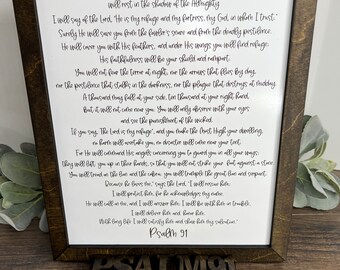 will rest in the shadow of the Almighty.
I will say of the Lord, "He is my refuge and my fortress, my God, in whom I trust."
Surely He will save you from the fowler's snare and from the deadly pestilence.
He will cover you with His feathers, and under His wings you will find refuge;
His faithfulness will be your shield and rampart.
You will not fear the terror of night, nor the arrow that flies by day,
nor the pestilence that stalks in the darkness, nor the plague that destroys at midday.
A thousand may fall at your side, ten thousand at your right hand,
but it will not come near you. You will only observe with your eyes
and see the punishment of the wicked.
If you say, "The Lord is my refuge", and you make the Most High your dwelling,
no harm will overtake you, no disaster will come near your tent.
For He will command His angels concerning you to guard you in all your ways;
they will lift you up in their hands, so that you will not strike your foot against a stone.
You will tread on the lion and the cobra; you will trample the great lion and serpent.
"Because he loves me," says the Lord, "I will rescue him;
I will protect him, for he acknowledges my name.
He will call on me, and I will answer him; I will be with him in trouble,
I will deliver him and honor him.
With long life I will satisfy him and show him my salvation."
Psalm 91